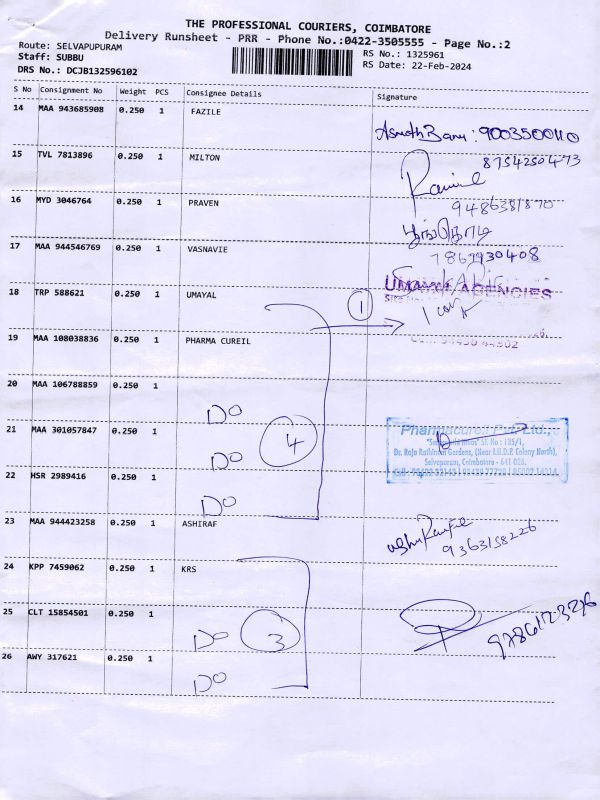 THE PROFESSIONAL COURIERS, COIMBATORE
Delivery Runsheet - PRR - Phone No.:0422-3505555 - Page No.:2
Route: SELVAPUPURAM
RS No.: 1325961
Staff: SUBBU
RS Date: 22-Feb-2024
DRS No.: DCJB132596102
S No Consignment No Weight PCS Consignee Details Signature
14 MAA 943685908 0.250 1 FAZILE
Asmath Banu : 9003500110
15 TVL 7813896 0.250 1 MILTON
8754250473
16 MYD 3046764 0.250 1 PRAVEN
9486381870
17 MAA 944546769 0.250 1 VASNAVIE
7867930408
18 TRP 588621 0.250 1 UMAYAL
AGENCIES
1
19 MAA 108038836 0.250 1 PHARMA CUREIL
20 MAA 106788859 0.250 1
DO
21 MAA 301057847 0.250 1
4
DO
Pharmacureil Pvt Ltd.,
S.F. No : 185/1,
Dr. Raja Rathinam Gardens, (Near I.U.D.P. Colony North),
Selvapuram, Coimbatore - 641 026.
22 HSR 2989416 0.250 1
DO
23 MAA 944423258 0.250 1 ASHIRAF
9363158226
24 KPP 7459062 0.250 1 KRS
25 CLT 15854501 0.250 1
DO 3
9786123226
26 AWY 317621 0.250 1
DO